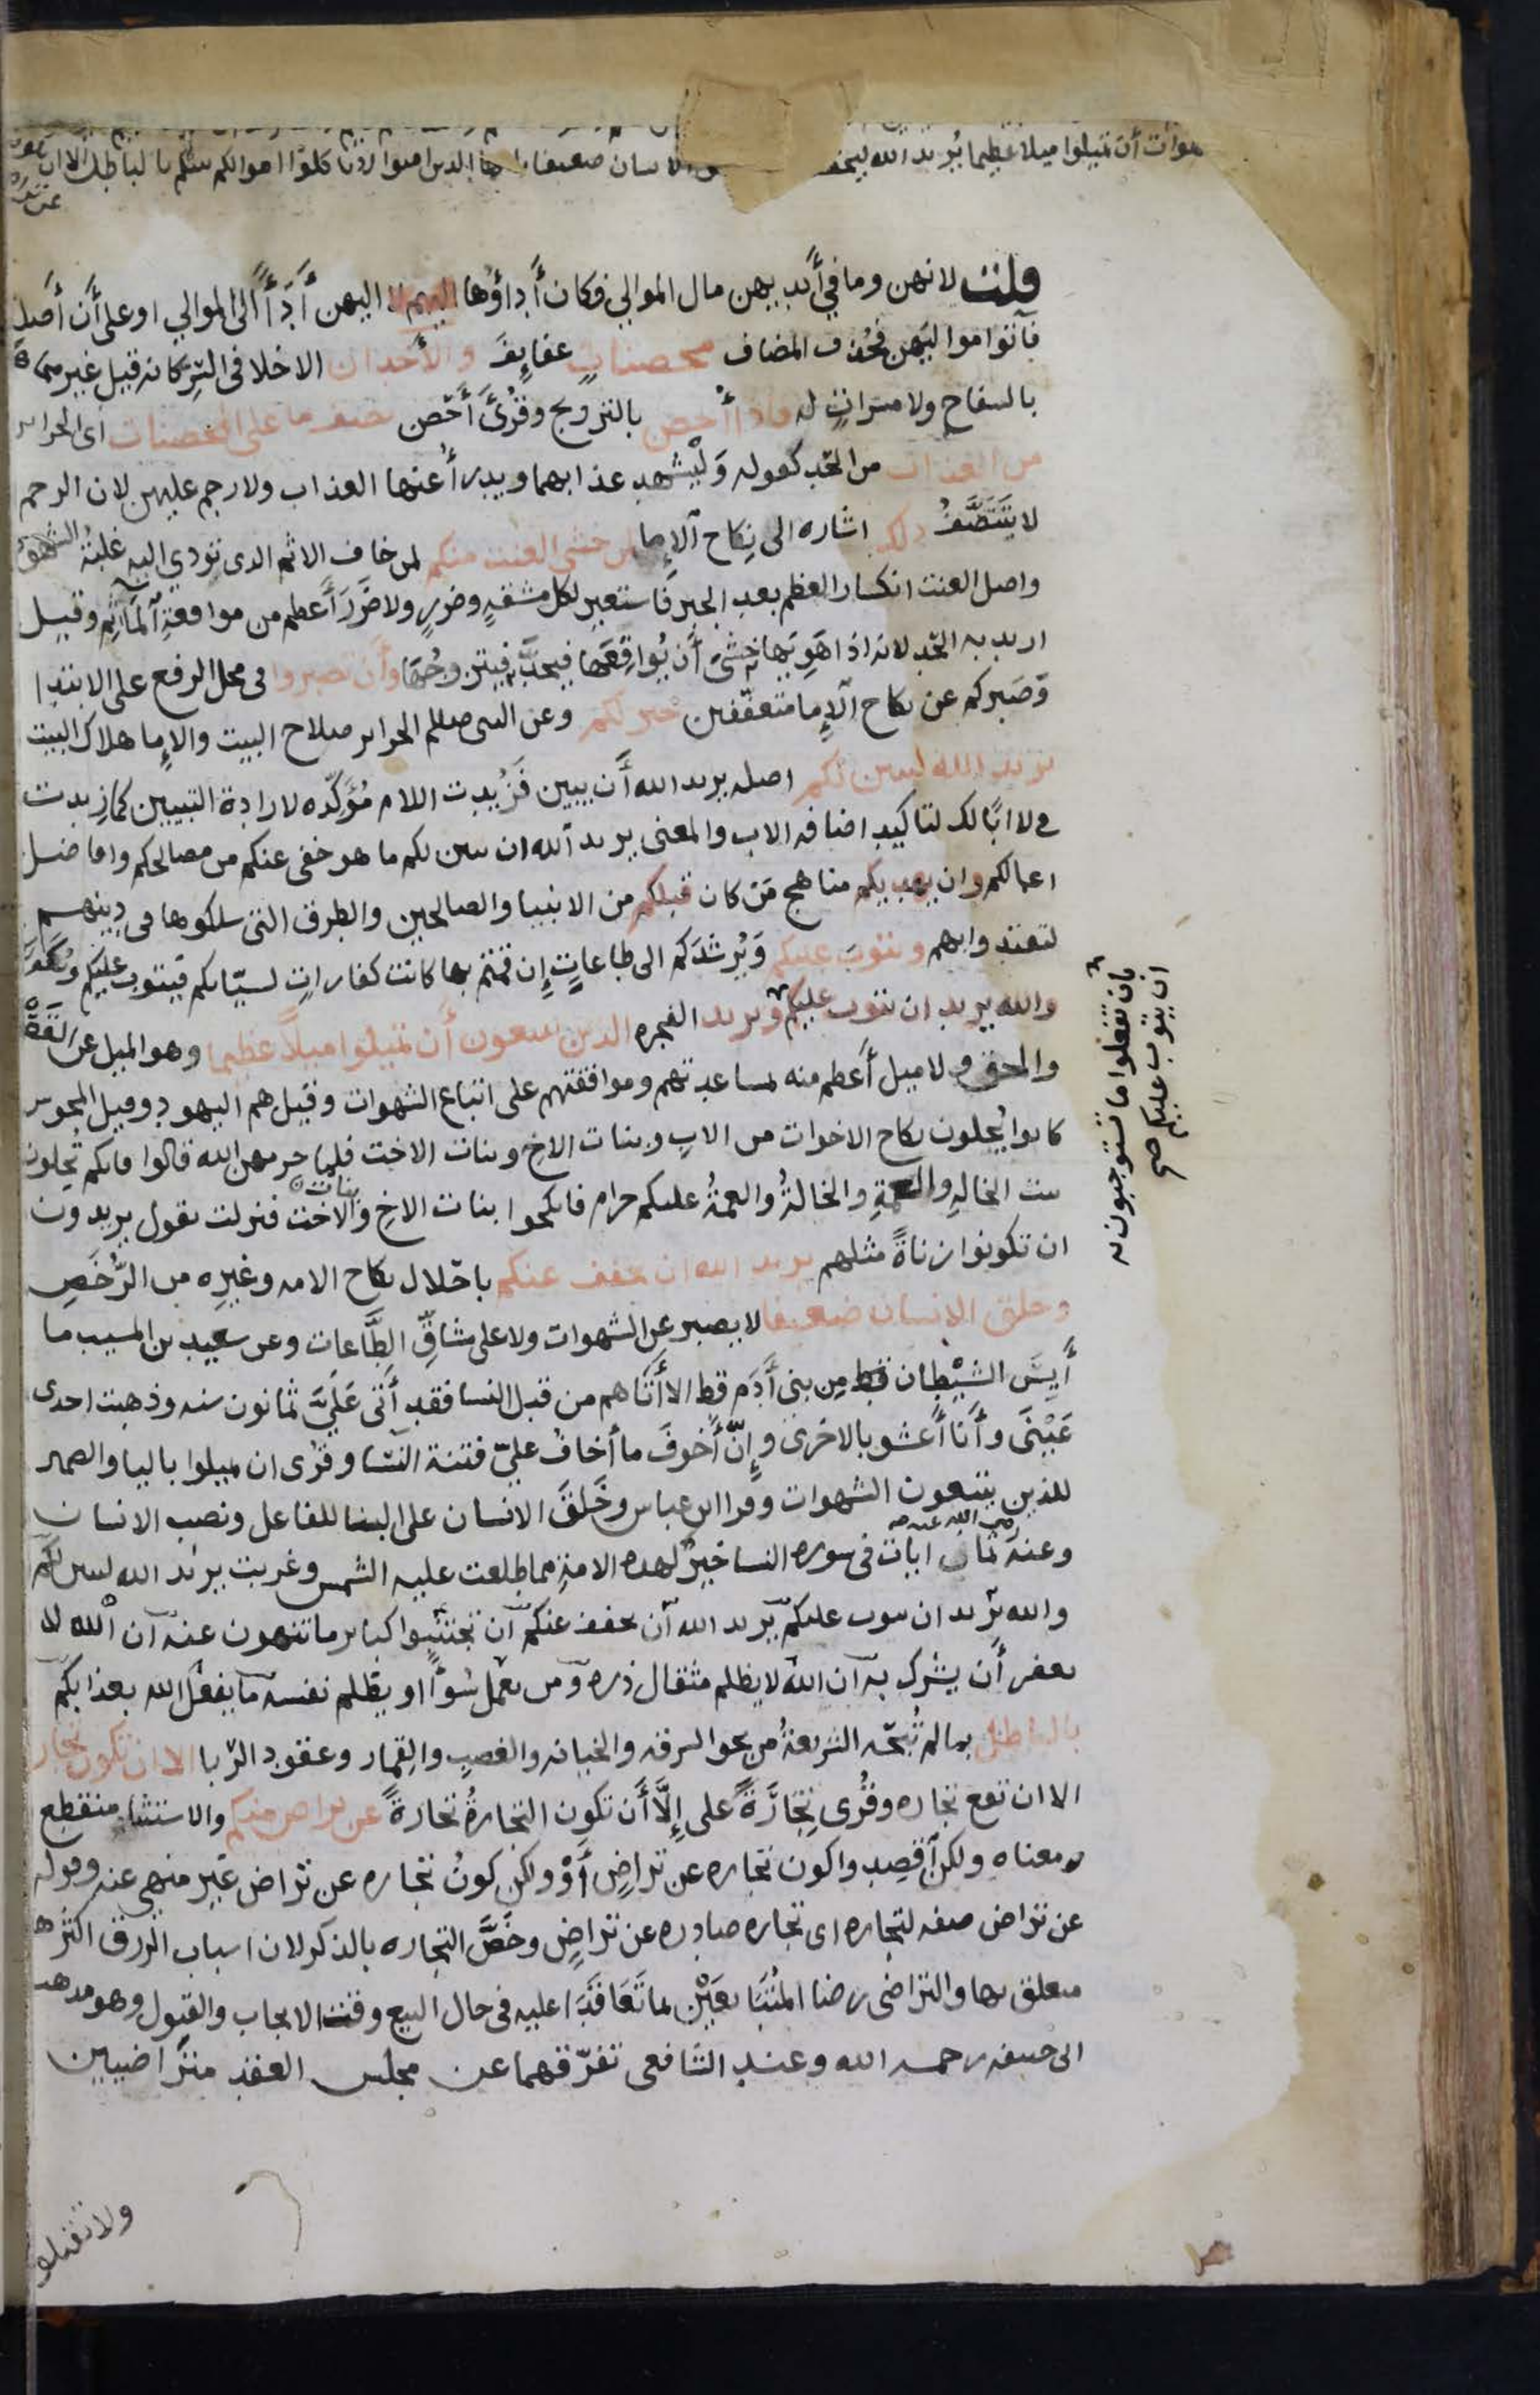 هوات أن تميلوا ميلا عظيما يريد الله ليخف الانسان ضعيفا يا ايها الدين امنوا لا تاكلوا اموالكم بينكم بالباطل الا ان تكون
عن تر
قلت لانهن وما في أيديهن مال الموالي فكان أداؤها اليهن أداأ الى الموالي او على أن أصله
فآتوا مواليهن فحذف المضاف محصنات عفايف والأخدان الاخلا في السر كانه قيل غير مجاهرات
بالسفاح ولا مسرات له فاذا أحصن بالتزويج وقرئ أحصن نصف ما على المحصنات اى الحراير
من العذاب من الحد كقوله وليشهد عذابهما ويدرأ عنها العذاب ولا رجم عليهن لان الرجم
لا يتنصف ذلك اشاره الى نكاح الإما لمن خشي العنت منكم لمن خاف الاثم الدى تودي اليه غلبة الشهوة
واصل العنت انكسار العظم بعد الجبر فاستعير لكل مشقة وضرر ولا ضرر أعظم من مواقعة المآثم وقيل
اريد به الحد لانه اذا هويها خشى أن يواقعها فيحد فيتزوجها وأن تصبروا في محل الرفع على الابتدا
وصبركم عن نكاح الإما متعففين خير لكم وعن النبى صللم الحراير صلاح البيت والإما هلاك البيت
يريد الله ليبين لكم اصله يريد الله أن يبين فزيدت اللام مؤكده لارادة التبيين كما زيدت
في لا ابا لك لتاكيد اضافه الاب والمعنى يريد الله ان يبين لكم ما هو خفى عنكم من مصالحكم وافاضل
اعمالكم وان يهديكم مناهج من كان قبلكم من الانبيا والصالحين والطرق التى سلكوها فى دينهم
لتقتدوا بهم ويتوب عليكم ويرشدكم الى طاعات إن قمتم بها كانت كفارات لسيئاتكم فيتوب عليكم ويكفر
والله يريد ان يتوب عليكم ويريد الفجره الذين يتبعون أن تميلوا ميلا عظيما وهو الميل عن القصد
بان تفعلوا ما تستوجبون به
ان يتوب عليكم صح
والحق ولا ميل أعظم منه لمساعدتهم وموافقتهم على اتباع الشهوات وقيل هم اليهود وقيل المجوس
كانوا يحلون نكاح الاخوات من الاب وبنات الاخ وبنات الاخت فلما حرمهن الله قالوا فانكم تحلون
بنت الخالة والعمة والخالة والعمة عليكم حرام فانكحوا بنات الاخ وبنات الاخت فنزلت يقول يريدون
ان تكونوا زناة مثلهم يريد الله ان يخفف عنكم باحلال نكاح الامه وغيره من الرخص
وخلق الانسان ضعيفا لا يصبر عن الشهوات ولا على مشاق الطاعات وعن سعيد بن المسيب ما
أيس الشيطان قط من بنى أدم قط الا أتاهم من قبل النسا فقد أتى على ثمانون سنه وذهبت احدى
عينى وأنا أعشو بالاخرى وإن أخوف ما أخاف علي فتنة النسا وقرى ان يميلوا باليا والضمير
للذين يتبعون الشهوات وقرا ابن عباس وخلق الانسان على البنا للفاعل ونصب الانسان
وعنه رضى الله عنه ثمان ايات فى سوره النسا خير لهده الامة مما طلعت عليه الشمس وغربت يريد الله ليبين لكم
والله يريد ان يتوب عليكم يريد الله أن يخفف عنكم ان تجتنبوا كباير ما تنهون عنه ان الله لا
يغفر أن يشرك به ان الله لا يظلم مثقال ذره ومن يعمل سوءا او يظلم نفسه ما يفعل الله بعذابكم
بالباطل بما لم تبحه الشريعة من نحو السرقه والخيانه والغصب والقمار وعقود الربا الا ان تكون تجاره
الا ان تقع تجاره وقرى تجارة على إلا أن تكون التجارة تجارة عن تراض منكم والاستثنا منقطع
معناه ولكن اقصدوا كون تجاره عن تراض أو ولكن كون تجاره عن تراض غير منهي عنه وقوله
عن تراض صفه لتجاره اى تجاره صادره عن تراض وخص التجاره بالذكر لان اسباب الرزق اكثرها
متعلق بها والتراضى رضا المتبايعين بما تعاقدا عليه فى حال البيع وقت الايجاب والقبول وهو مذهب
ابى حنيفه رحمه الله وعند الشافعى تفرقهما عن مجلس العقد متراضيين
ولا تقتلو